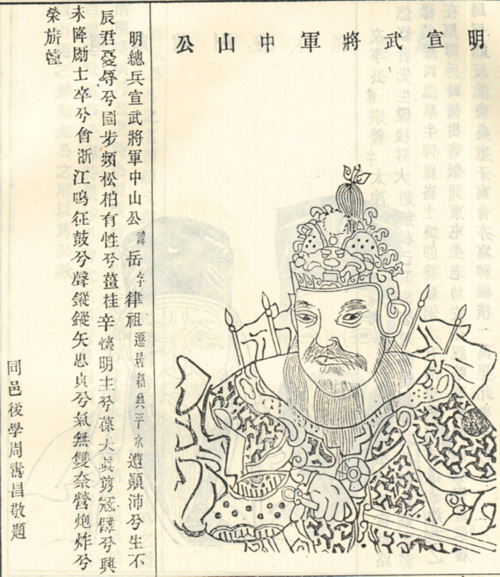 明宣武將軍中山公
明總兵宣武將軍中山公諱岳字律祖遷居興平水遭顛沛兮生不
辰君憂辱兮國步頻松柏有性兮薑桂辛懷明主兮葆大眞剪冠髮兮興
未降勵士卒兮會浙江鳴征鼓兮聲鏦鏦矢忠貞兮氣無雙奈營炮炸兮
榮旂幢
同邑後學周壽昌敬題